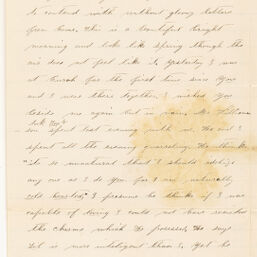 to contend with without gloomy letters
from home. This is a beautiful bright
morning and looks like spring though the
air does not feel like it. Yesterday I was
at Church for the first time since you
and I were there together, I wished you
beside me again but in vain, Mr Williams
son spent last evening with us, He and I
spent all the evening quarreling. He thinks
"its so unnatural that" I should idolize
any one as I do you, for I am naturally
cold hearted," I presume he thinks if I was
capable of loving I could not have resisted
the charms which he possesses, He says
Lil is more intelligent than I, Yet he